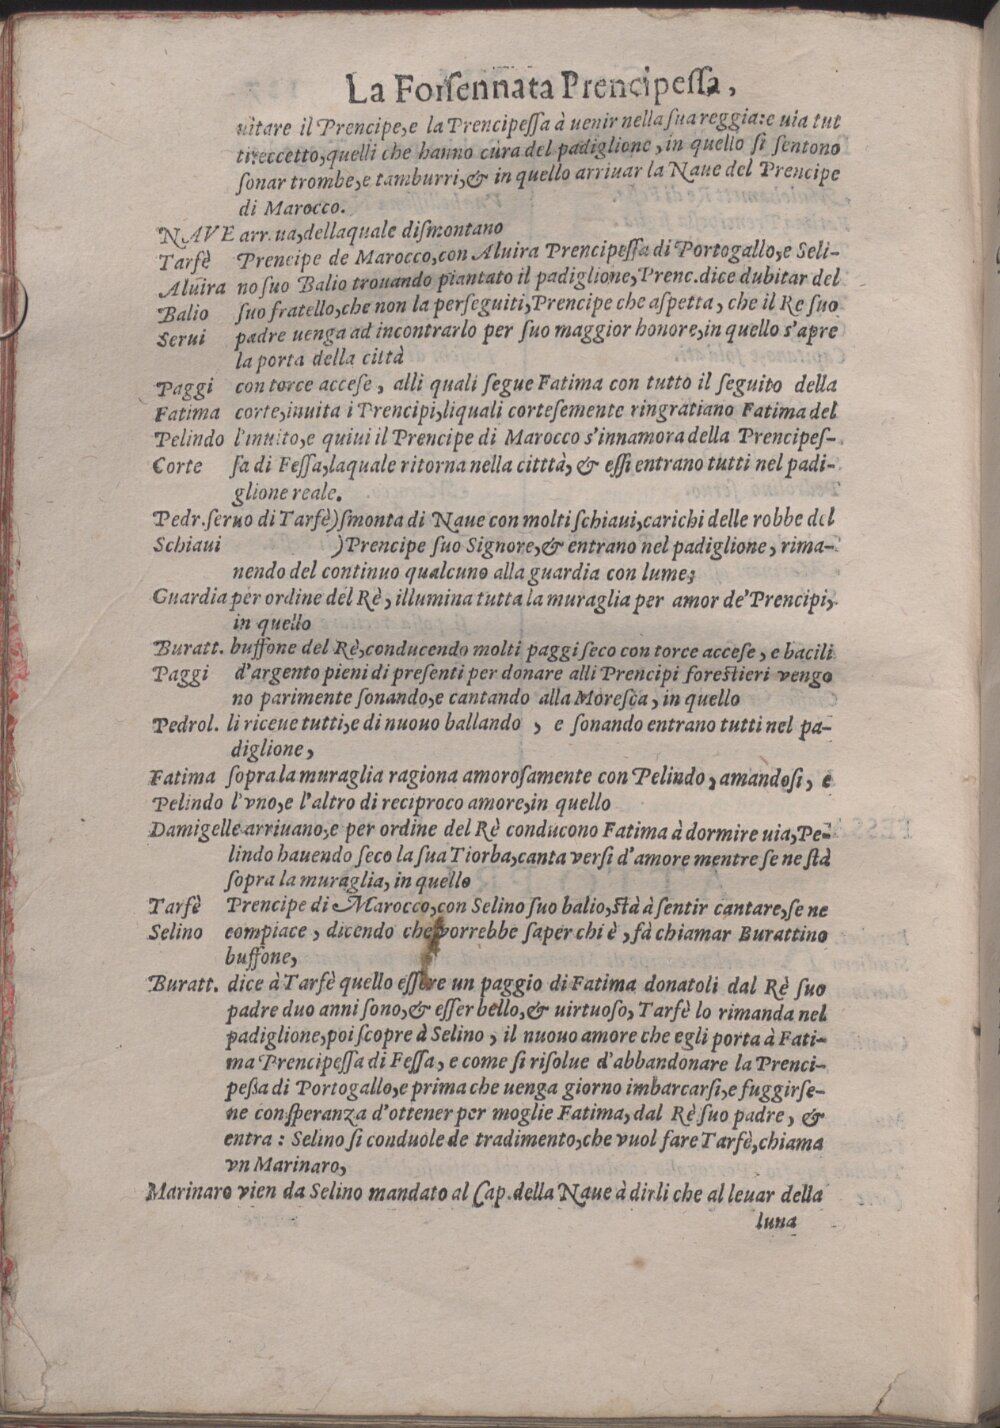 La Forsennata Prencipessa,
uitare il Prencipe, e la Prencipessa à uenir nella sua reggia: e uia tut
ti: eccetto, quelli che hanno cura del padiglione, in quello si sentono
sonar trombe, e tamburri, & in quello arriuar la Naue del Prencipe
di Marocco.
NAVE arriua, dellaquale dismontano
Tarfè Prencipe de Marocco, con Aluira Prencipessa di Portogallo, e Seli-
Aluira no suo Balio trouando piantato il padiglione, Prenc. dice dubitar del
Balio suo fratello, che non la perseguiti, Prencipe che aspetta, che il Re suo
Serui padre uenga ad incontrarlo per suo maggior honore, in quello s'apre
la porta della città
Paggi con torce accese, alli quali segue Fatima con tutto il seguito della
Fatima corte, inuita i Prencipi, liquali cortesemente ringratiano Fatima del
Pelindo l'inuito, e quiui il Prencipe di Marocco s'innamora della Prencipes-
Corte sa di Fessa, laquale ritorna nella citttà, & essi entrano tutti nel padi-
glione reale.
Pedr. seruo di Tarfè) smonta di Naue con molti schiaui, carichi delle robbe del
Schiaui ) Prencipe suo Signore, & entrano nel padiglione, rima-
nendo del continuo qualcuno alla guardia con lume;
Guardia per ordine del Rè, illumina tutta la muraglia per amor de' Prencipi,
in quello
Buratt. buffone del Rè, conducendo molti paggi seco con torce accese, e bacili
Paggi d'argento pieni di presenti per donare alli Prencipi forestieri vengo
no parimente sonando, e cantando alla Moresca, in quello
Pedrol. li riceue tutti, e di nuouo ballando , e sonando entrano tutti nel pa-
diglione,
Fatima sopra la muraglia ragiona amorosamente con Pelindo, amandosi, e
Pelindo l'vno, e l'altro di reciproco amore, in quello
Damigelle arriuano, e per ordine del Rè conducono Fatima à dormire uia, Pe-
lindo hauendo seco la sua Tiorba, canta versi d'amore mentre se ne stà
sopra la muraglia, in quello
Tarfè Prencipe di Marocco, con Selino suo balio, stà à sentir cantare, se ne
Selino compiace, dicendo che vorrebbe saper chi è, fà chiamar Burattino
buffone,
Buratt. dice à Tarfè quello essere un paggio di Fatima donatoli dal Rè suo
padre duo anni sono, & esser bello, & uirtuoso, Tarfè lo rimanda nel
padiglione, poi scopre à Selino, il nuouo amore che egli porta à Fati-
ma Prencipessa di Fessa, e come si risolue d'abbandonare la Prenci-
pessa di Portogallo, e prima che uenga giorno imbarcarsi, e fuggirse-
ne con speranza d'ottener per moglie Fatima, dal Rè suo padre, &
entra: Selino si conduole de tradimento, che vuol fare Tarfè, chiama
vn Marinaro,
Marinaro vien da Selino mandato al Cap. della Naue à dirli che al leuar della
luna